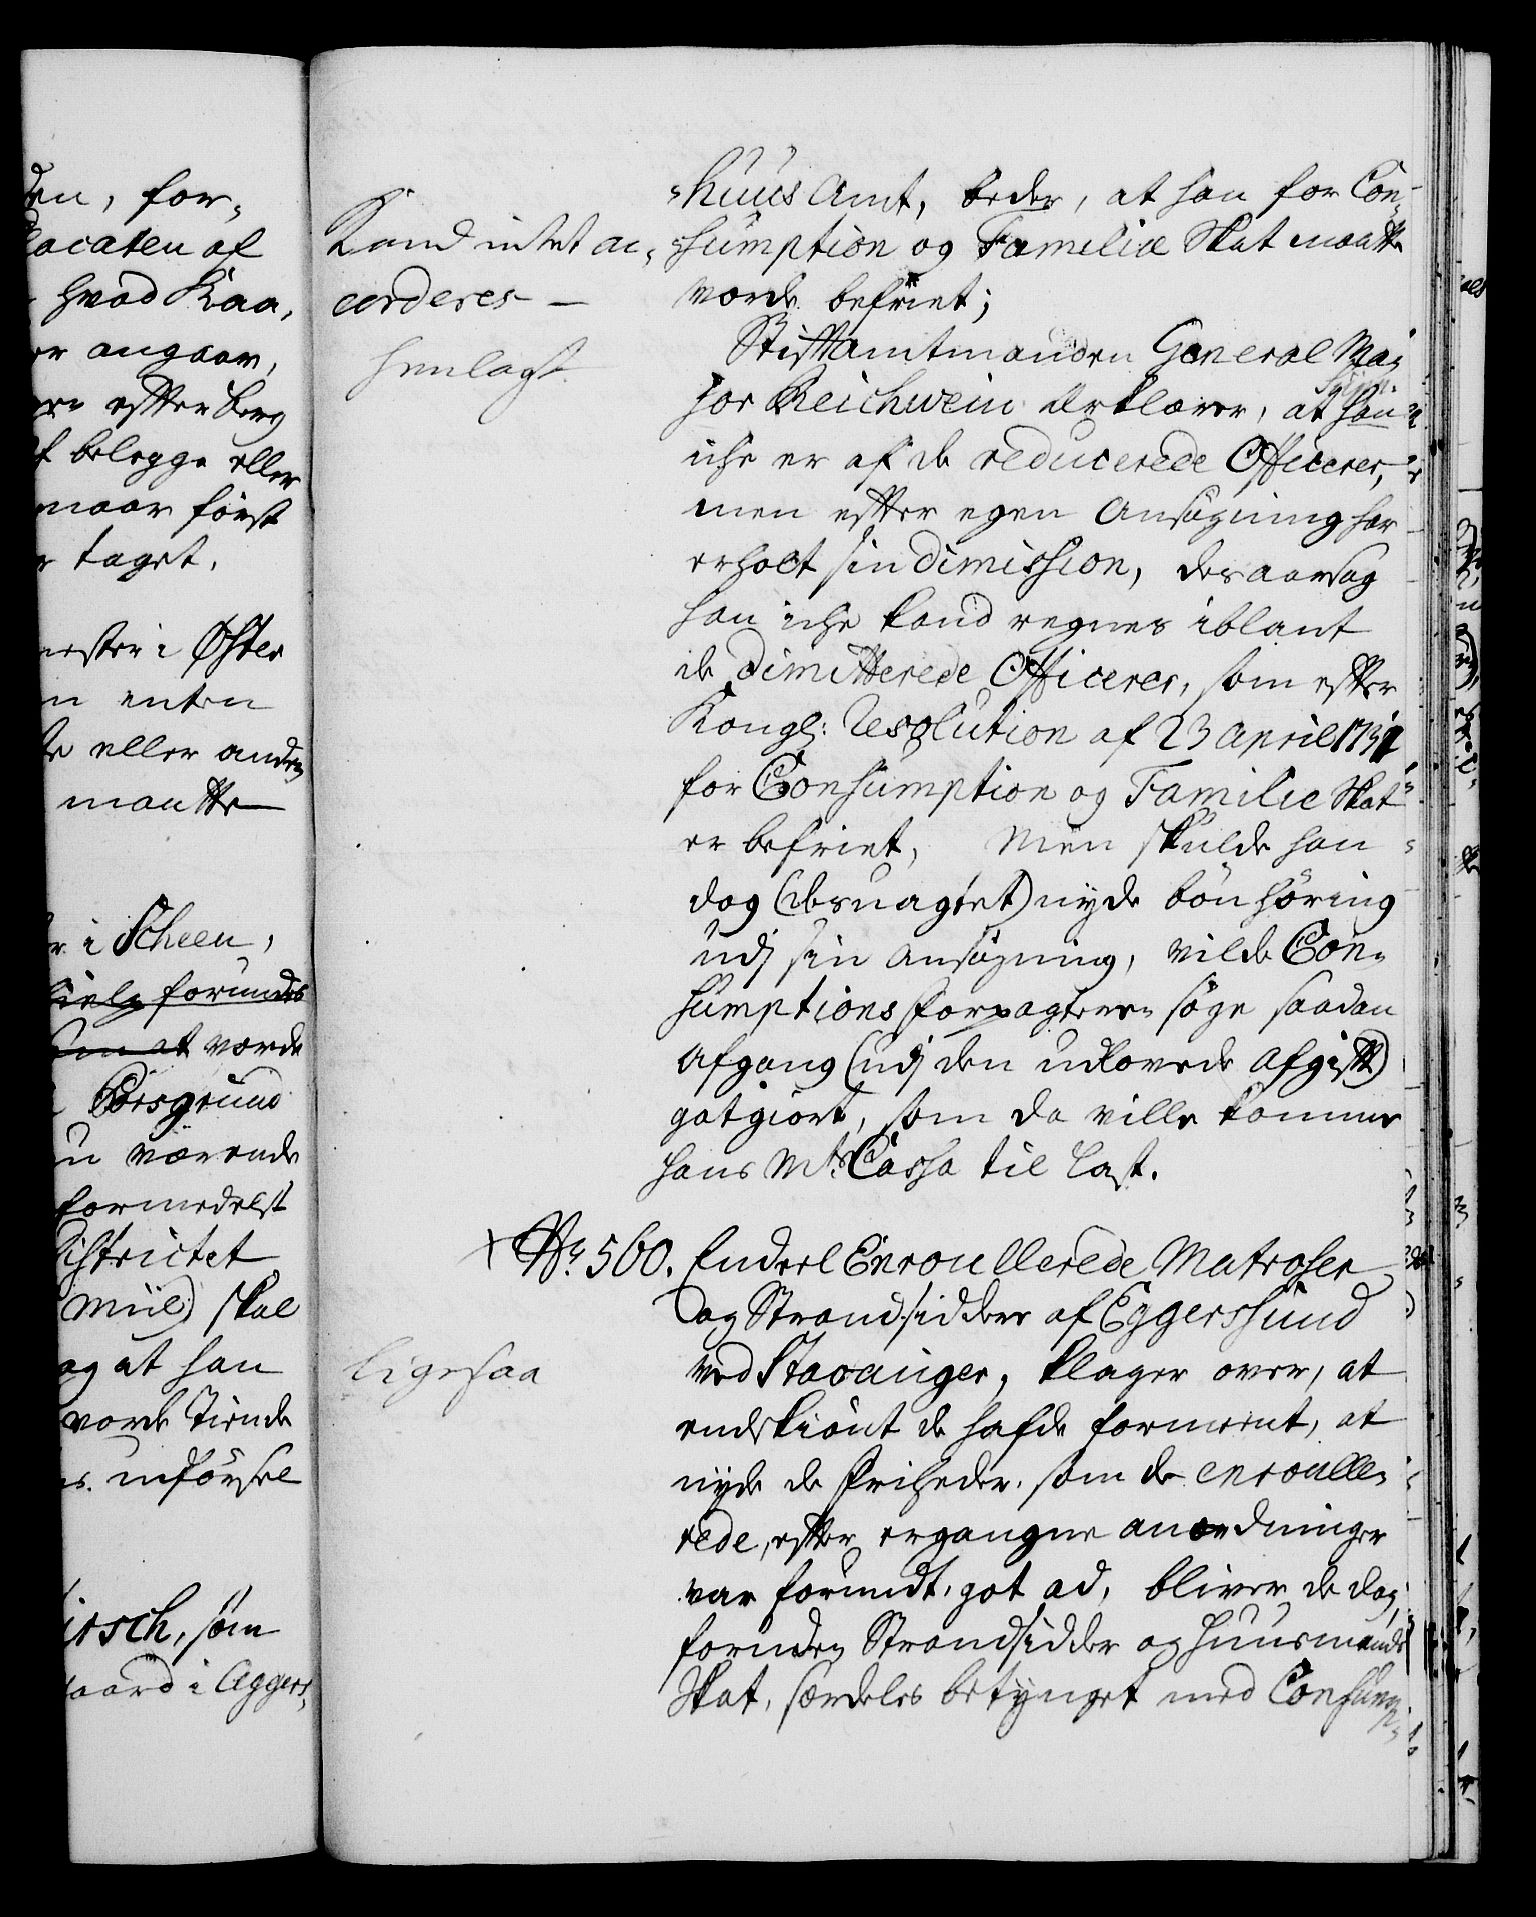 den, for-
af
hvad Kaa,
er angaar,
efter
belegge eller
maar först
taget.
mester i Öster
enten
eller anden
maatte
i Scheen,
forundes
om at vorde
Porsgrund
værende
formedelst
Districtet
Miil) skal
og at han
vorde Tiende
udförsel
irsch, som
gaard i Aggers,
Kand intet ac,
corderes —
henlagt
ligesaa
-huus Amt, beder, at han for Con-
-sumption og Familie Skat maatte
vorde befriet;
Stiftamtmanden General Ma-
jor Reichwein Erklærer, at Suppl.
han
iche er af de reducerede Officerer,
men efter egen Ansögning har
erholt sin Dimission, des aarsag
han iche kand regnes iblant
de Dimitterede Officerer, som efter
Kongl: Resolution af 23 April
for Consumption og Familie Skat
er befriet, Men skulde han
dog (desuagtet) nyde bönhöring
udj sin Ansögning, vilde Con-
sumptions forpagteren söge saadan
Afgang (udj den udlovede Afgift)
gotgiort, som da ville komme
hans Mts. Cassa til last.
+ No. 560. Endeel Enroullerede Matroser
og Strandsiddere af Eggersund
ved Stavanger, klager over, at
endskiönt de hafde formeent, at
nyde de friheder, som de enroulle-
rede, efter ergangne anordninger
var forundt, got ad, bliver de dog,
foruden Strandsidder og Huusmands
Skat, særdeles betynget med Consump-